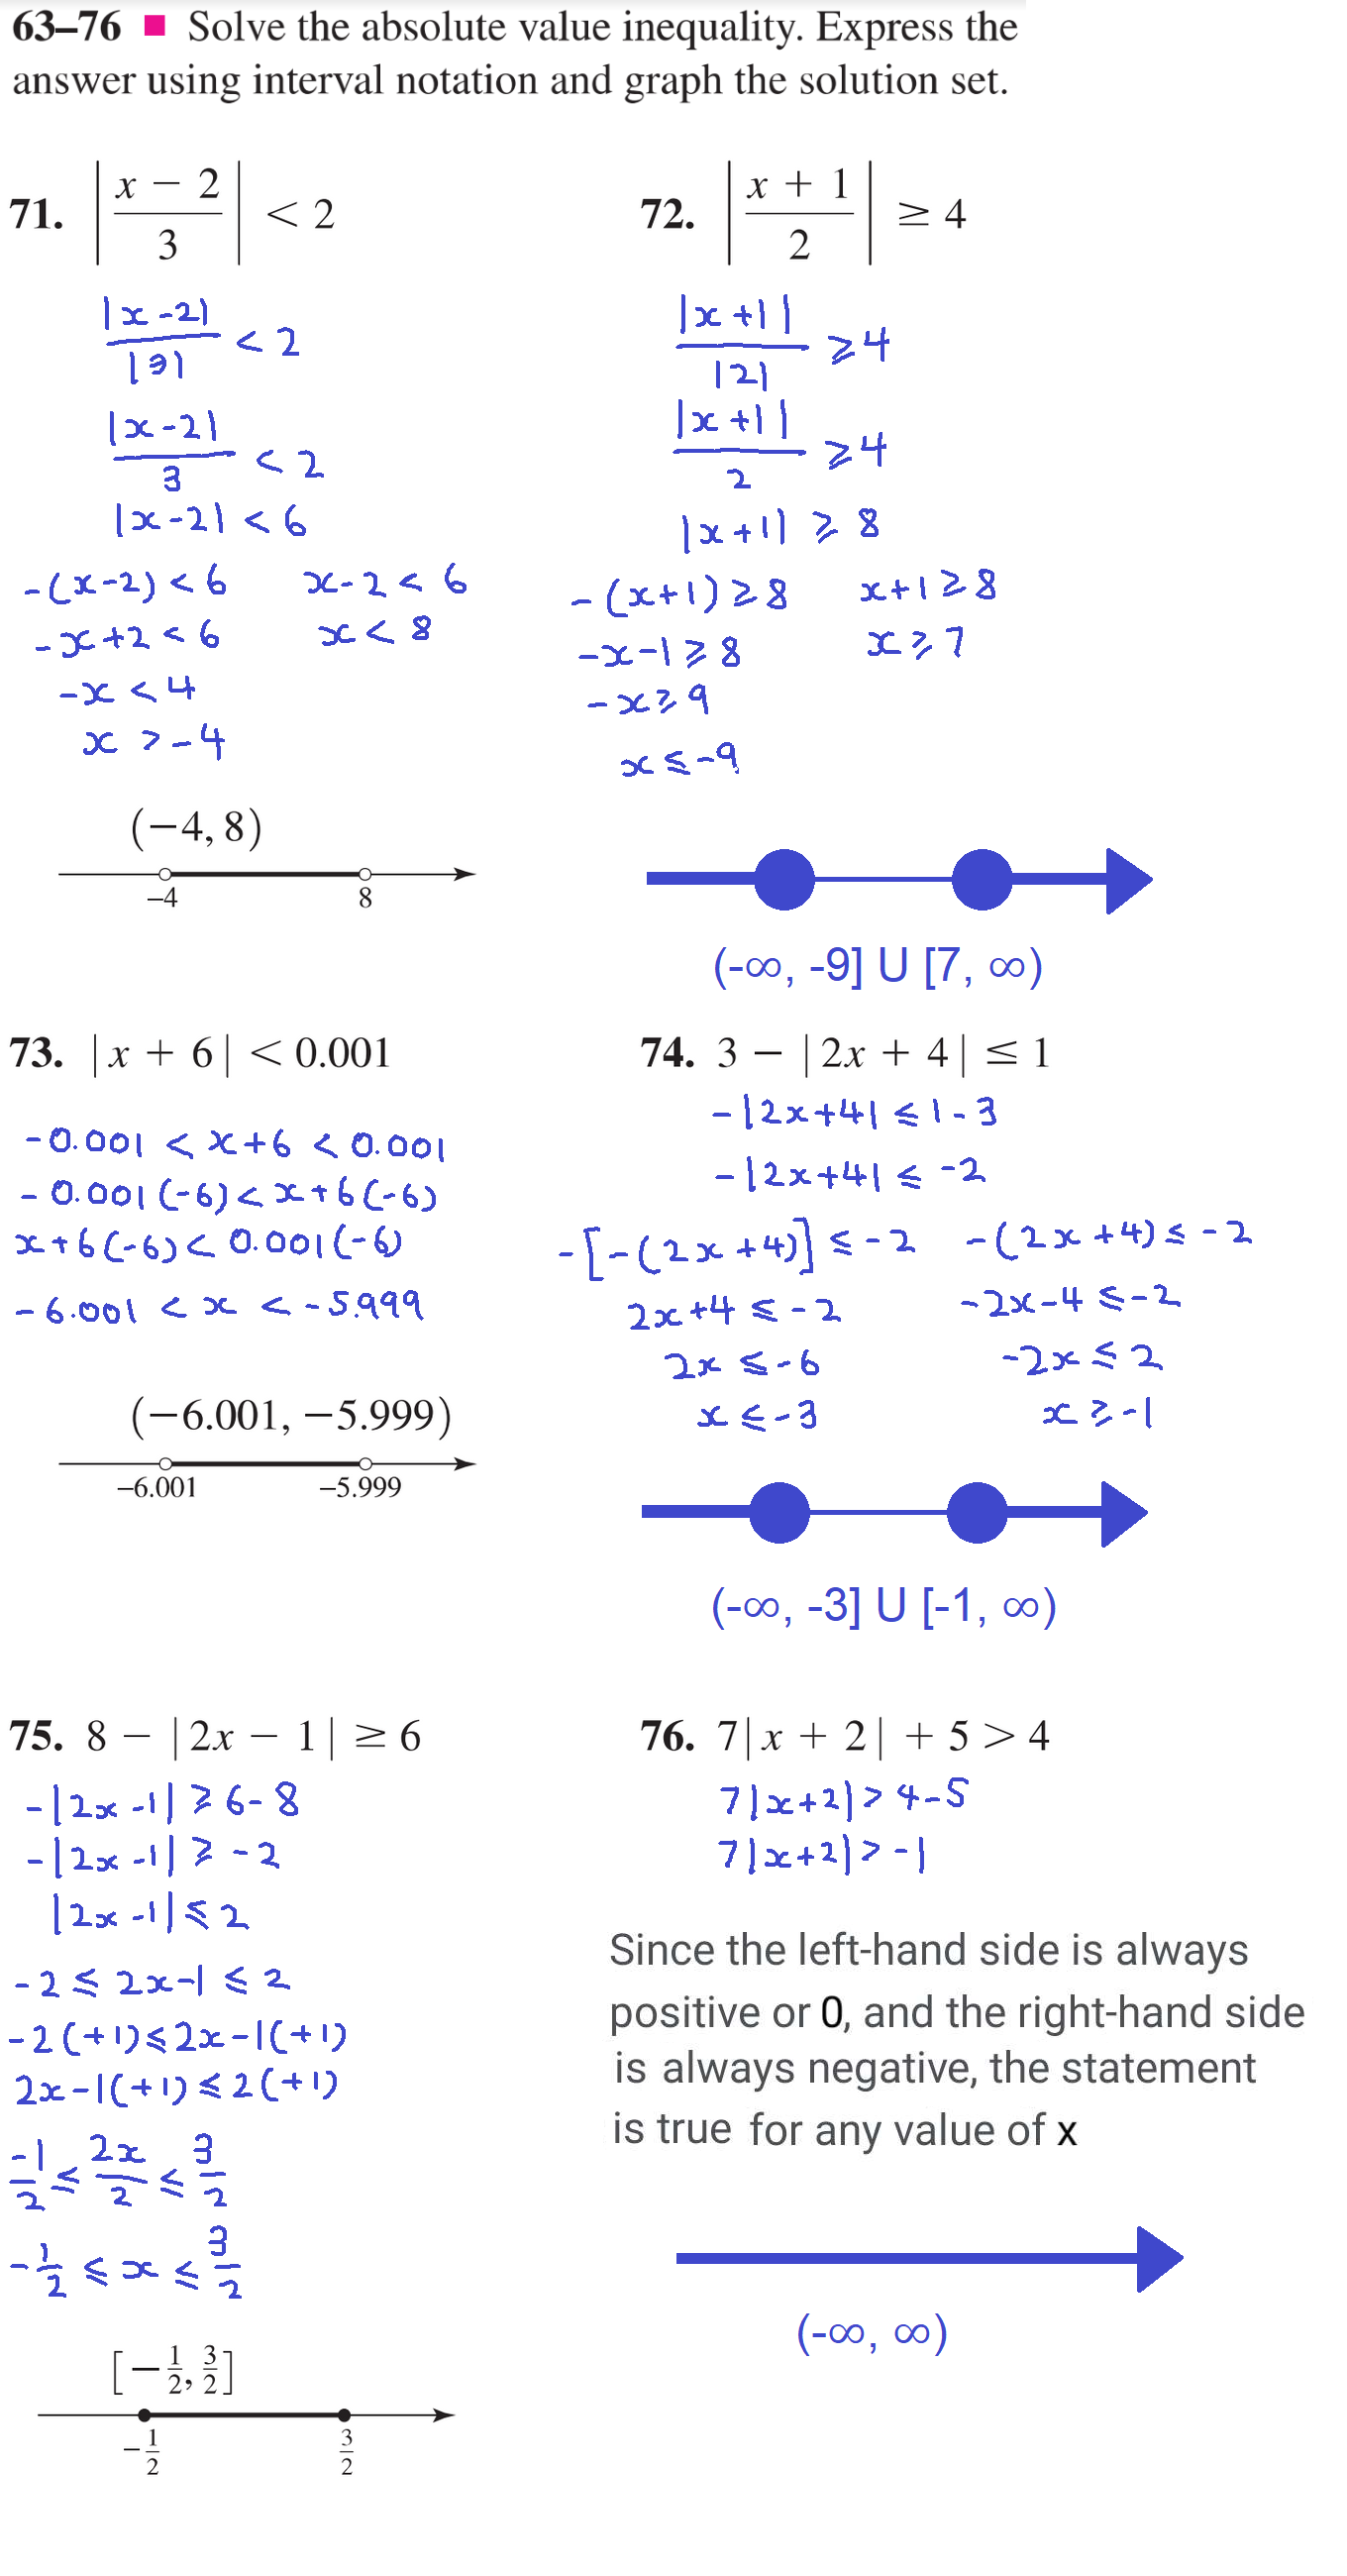 63–76 ■ Solve the absolute value inequality. Express the
answer using interval notation and graph the solution set.
71. |(x − 2)/3| < 2
|x-2|/|3| < 2
|x-2|/3 < 2
|x-2| < 6
-(x-2) < 6    x-2 < 6
-x+2 < 6    x < 8
-x < 4
x > -4
(−4, 8)
−4    8
72. |(x + 1)/2| ≥ 4
|x+1|/|2| ≥ 4
|x+1|/2 ≥ 4
|x+1| ≥ 8
-(x+1) ≥ 8    x+1 ≥ 8
-x-1 ≥ 8    x ≥ 7
-x ≥ 9
x ≤ -9
(-∞, -9] U [7, ∞)
73. |x + 6| < 0.001
-0.001 < x+6 < 0.001
-0.001(-6) < x+6(-6)
x+6(-6) < 0.001(-6)
-6.001 < x < -5.999
(−6.001, −5.999)
−6.001    −5.999
74. 3 − |2x + 4| ≤ 1
-|2x+4| ≤ 1-3
-|2x+4| ≤ -2
-[-(2x+4)] ≤ -2    -(2x+4) ≤ -2
2x+4 ≤ -2    -2x-4 ≤ -2
2x ≤ -6    -2x ≤ 2
x ≤ -3    x ≥ -1
(-∞, -3] U [-1, ∞)
75. 8 − |2x − 1| ≥ 6
-|2x-1| ≥ 6-8
-|2x-1| ≥ -2
|2x-1| ≤ 2
-2 ≤ 2x-1 ≤ 2
-2(+1) ≤ 2x-1(+1)
2x-1(+1) ≤ 2(+1)
-1/2 ≤ 2x/2 ≤ 3/2
-1/2 ≤ x ≤ 3/2
[−1/2, 3/2]
−1/2    3/2
76. 7|x + 2| + 5 > 4
7|x+2| > 4-5
7|x+2| > -1
Since the left-hand side is always
positive or 0, and the right-hand side
is always negative, the statement
is true for any value of x
(-∞, ∞)